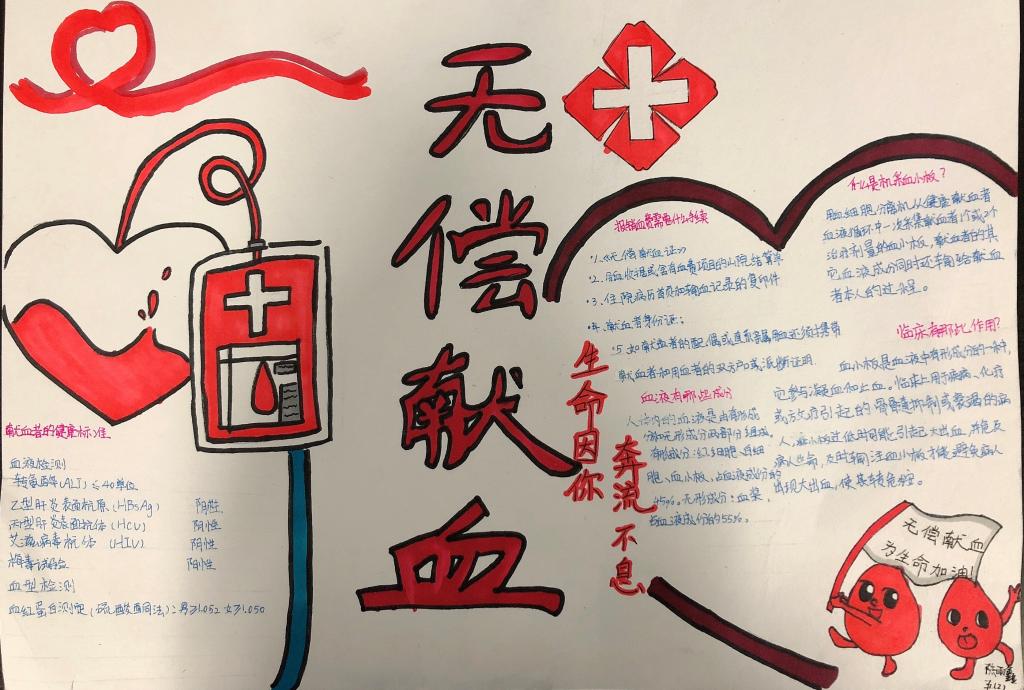 无偿献血
献血者的健康标准
血液检测
转氨酶(ALT) ≤40单位
乙型肝炎表面抗原(HBsAg) 阴性
丙型肝炎表面抗体(HCV) 阴性
艾滋病毒抗体(HIV) 阴性
梅毒试验 阴性
血型检测
血红蛋白测定(硫酸铜法):男≥1.052 女≥1.050
报销血费需要什么手续
1.《无偿献血证》
2. 用血收据或含有血费项目的出院结算单
3. 住院病历首页和输血记录的复印件
4. 献血者身份证;
5. 如献血者的配偶或直系亲属用血还须携带
献血者和用血者的双方户口或派断证明.
生命因你
奔流不息
血液有哪些成分
人体内的血液是由有形成
分和无形成分两部分组成,
有形成分:红细胞、白细
胞、血小板,占血液成分的
45%。无形成分:血浆,
占血液成份的55%.
什么是机采血小板?
用血细胞分离机从健康献血者
血液循环中一次采集献血者1个或2个
治疗剂量的血小板,献血者的其
它血液成份同时还输给献血
者本人的过程。
临床有那些作用?
血小板是血液中有形成分的一种,
它参与凝血和止血。临床上用于癌病、化疗
或放疗引起的骨髓抑制或衰竭的病
人,血小板过低时可能引起大出血,并危及
病人生命,及时输注血小板才能避免病人
出现大出血,使其转危为安.
无偿献血
为生命加油!